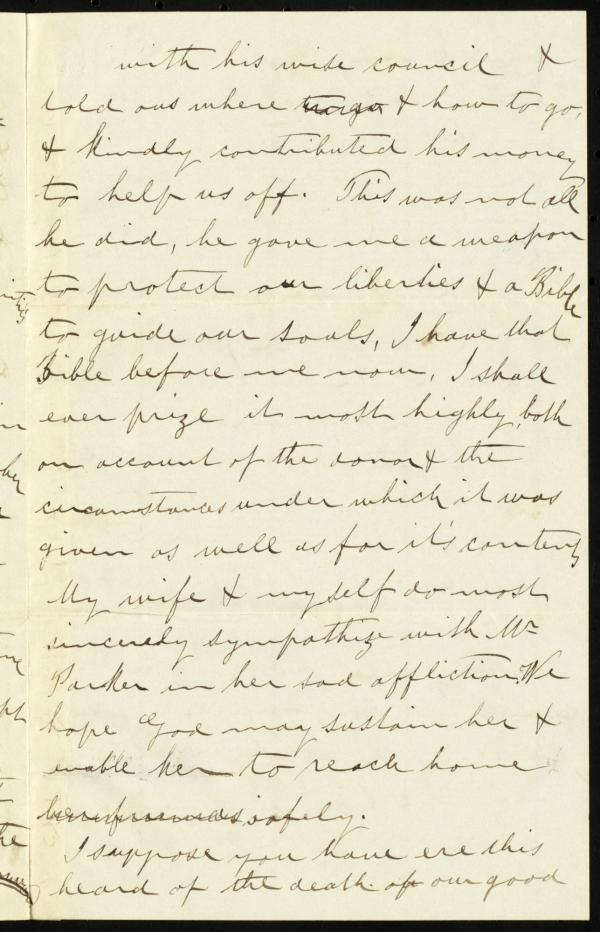 with his wise council &
told ous where to go & how to go,
& kindly contributed his money
to help us off. This was not all
he did, he gave me a weapon
to protect our liberties & a Bible
to guide our souls, I have that
Bible before me now, I shall
ever prize it most highly, both
on account of the donor & the
circumstances under which it was
given as well as for it's contents
My wife & myself do most
sincerely sympathize with Mr
Parker in her sad affliction. We
hope God may sustain her &
enable her to reach home
her friends safely.
I suppose you have ere this
heard of the death of our good